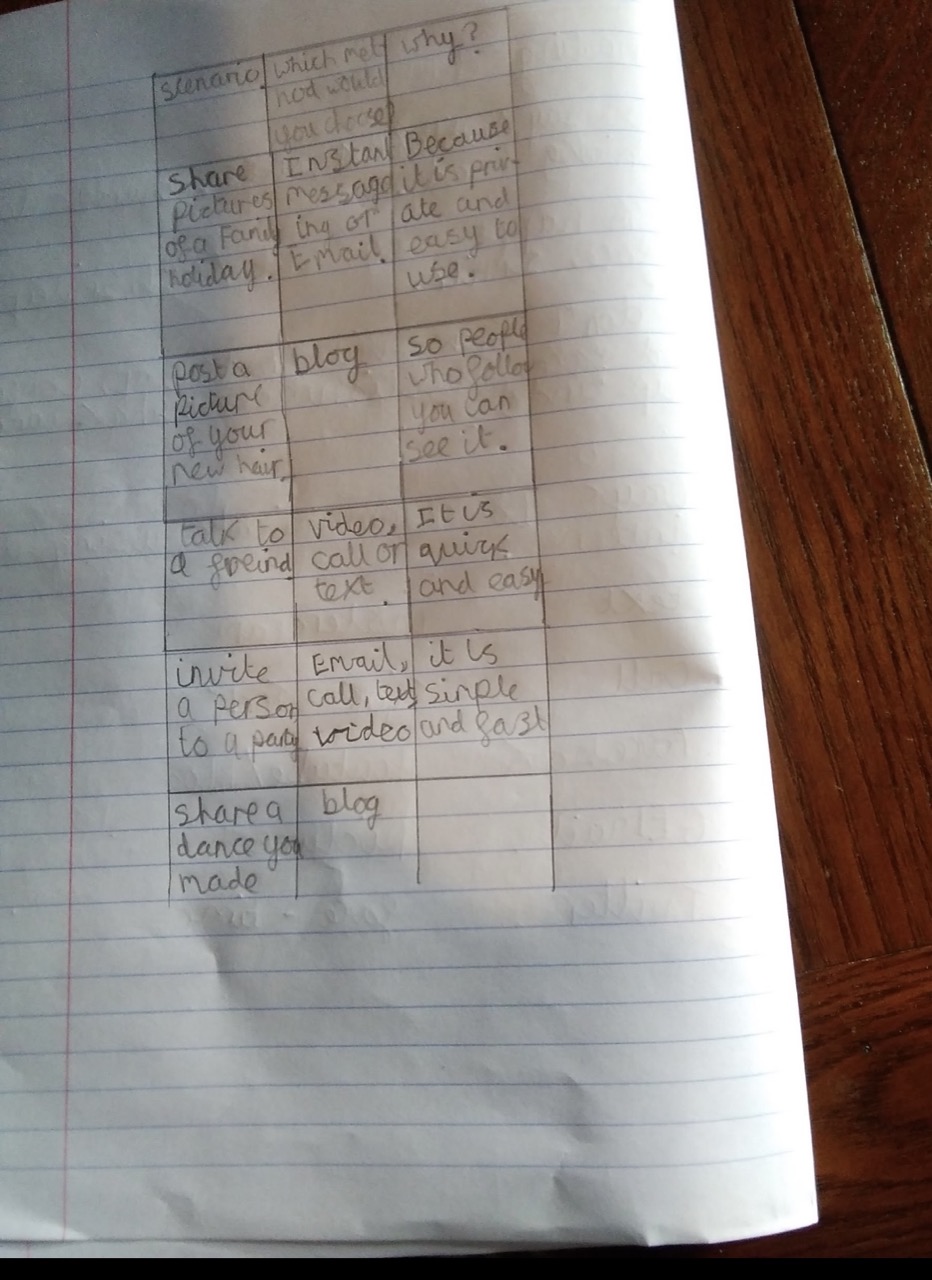 scenario.
which met
hod would
you choose
why?
share
pictures
of a Family
holiday.
Instant
messag
ing or
Email.
Because
it is priv
ate and
easy to
use.
post a
picture
of your
new hair.
blog
so people
who follow
you can
see it.
talk to
a freind
video,
call or
text.
It is
quick
and easy
invite
a person
to a party
Email,
call, text
video
it is
simple
and fast
share a
dance you
made
blog